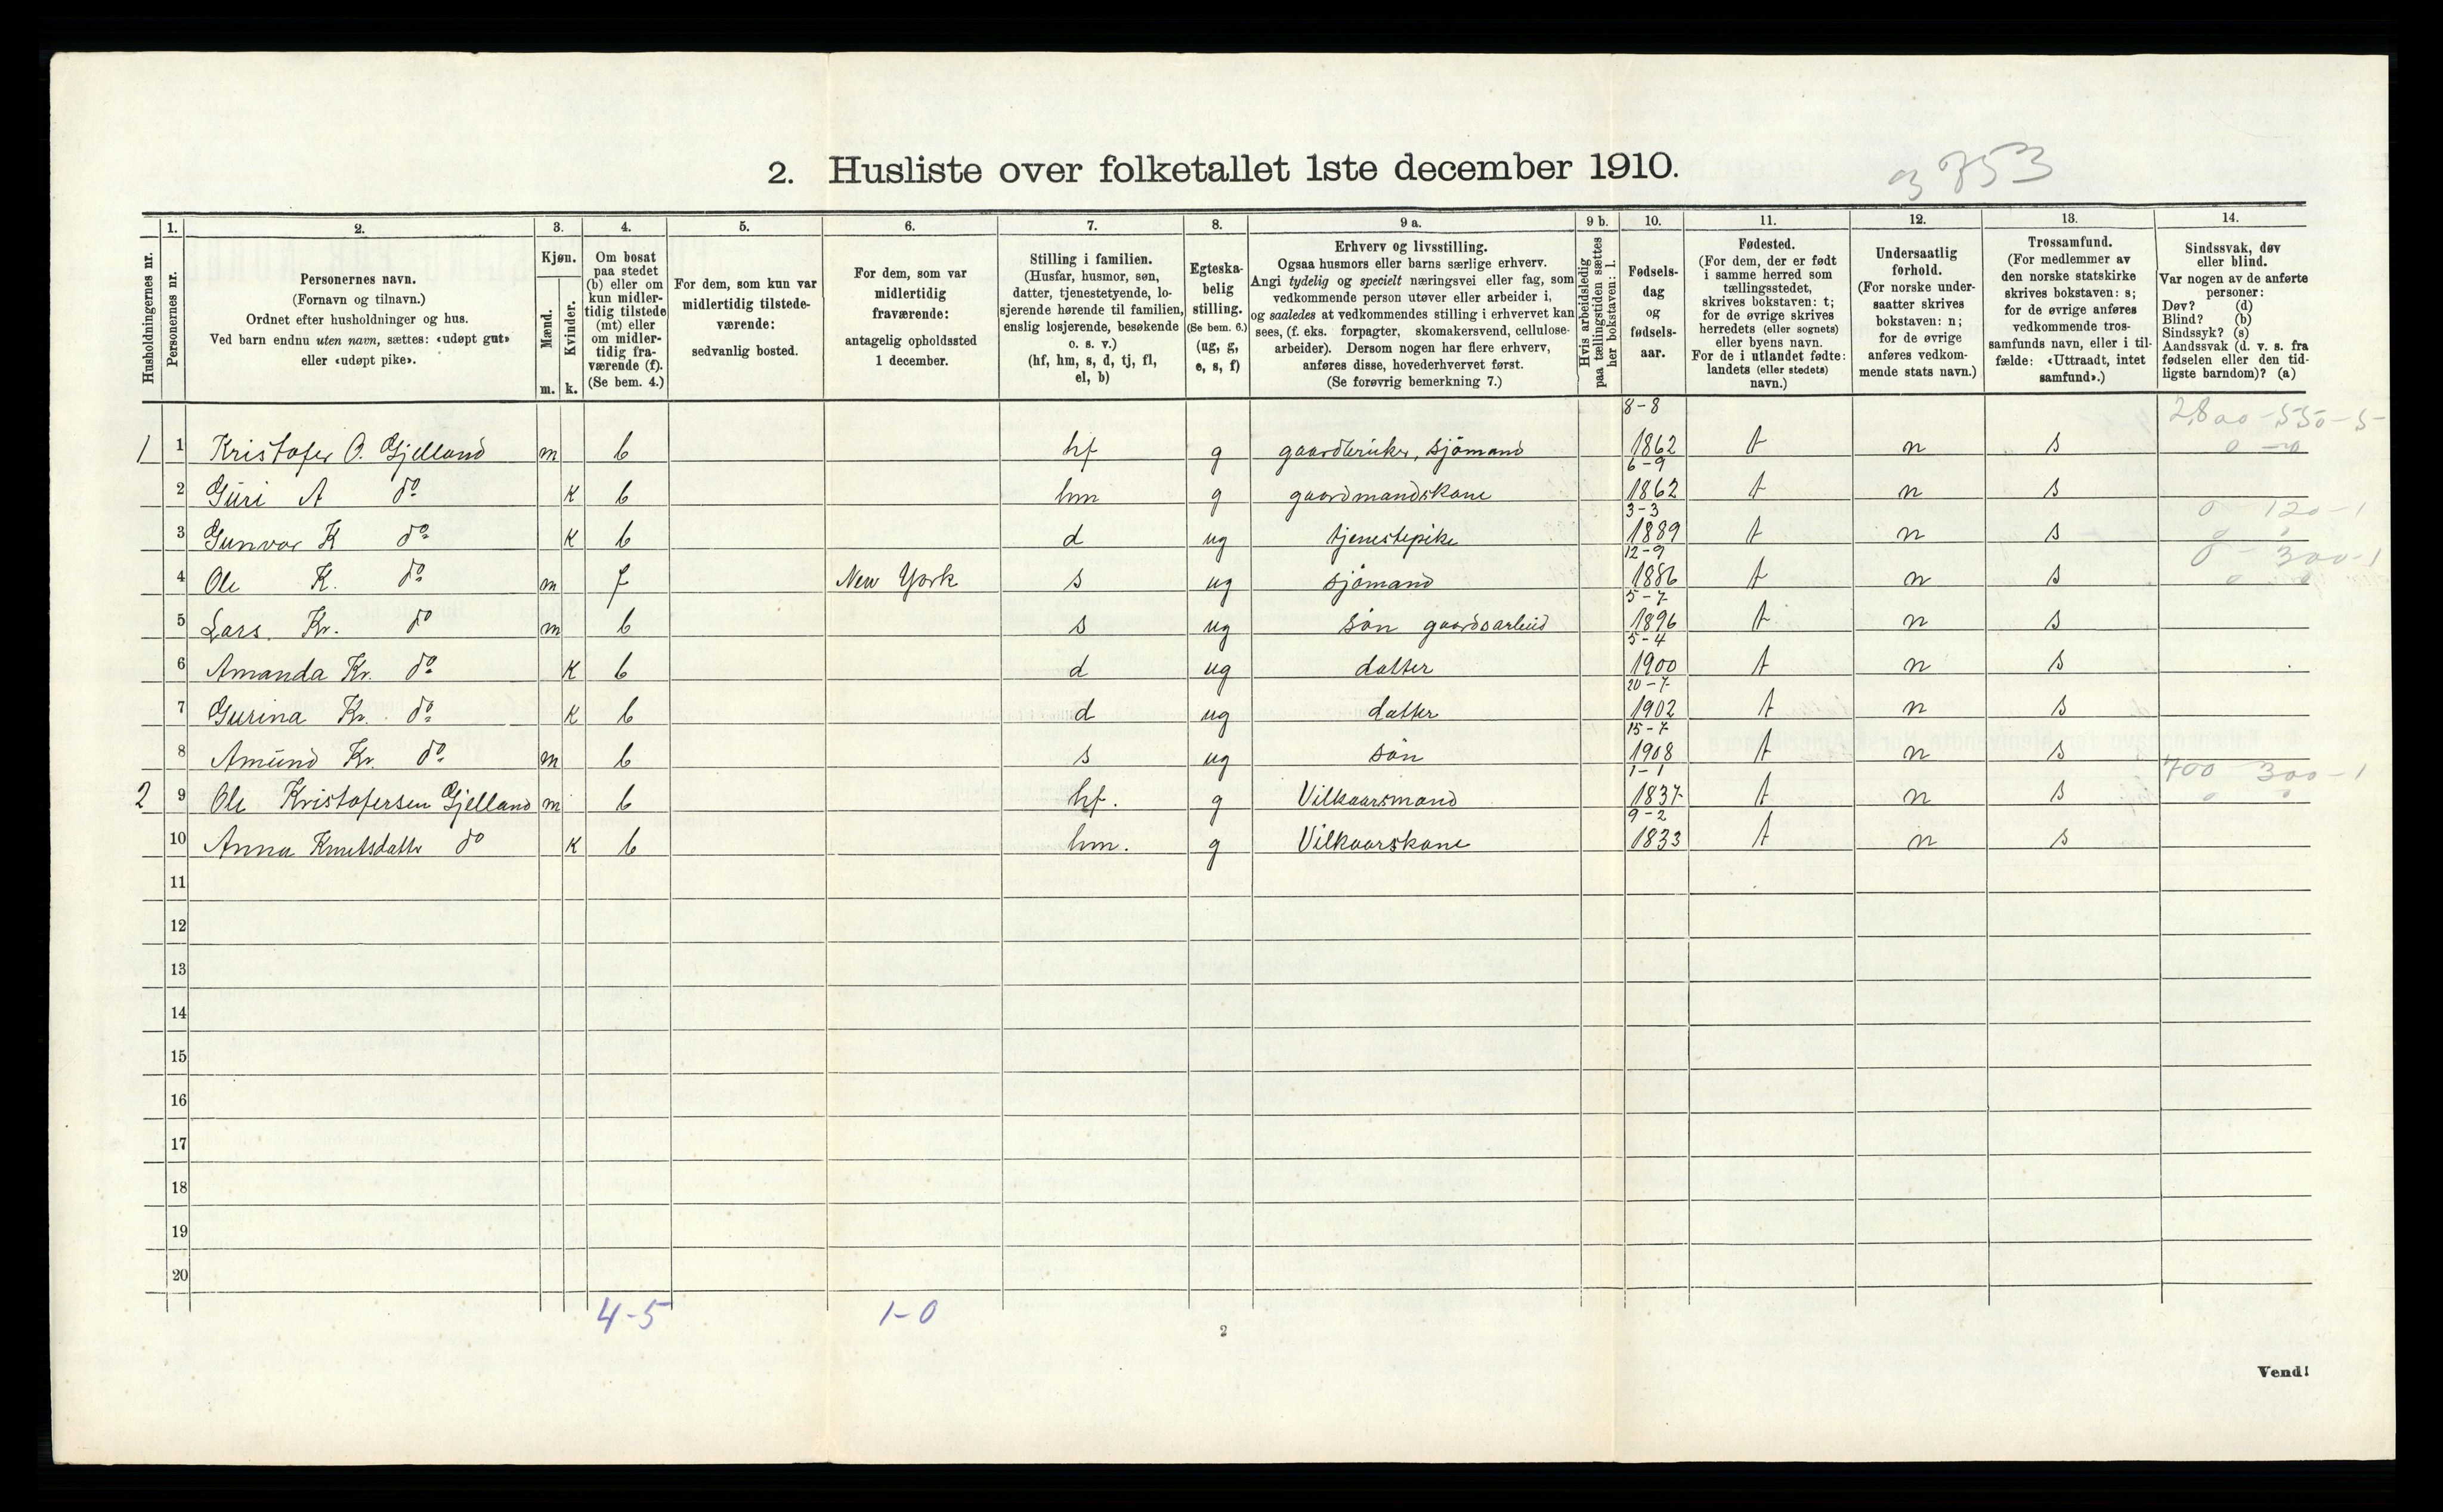 2. Husliste over folketallet 1ste december 1910.
3753
Husholdningernes nr.
1.
Personernes nr.
2.
Personernes navn.
(Fornavn og tilnavn.)
Ordnet efter husholdninger og hus.
Ved barn endnu uten navn, sættes: «udøpt gut»
eller «udøpt pike».
3.
Kjøn.
Mænd.
m.
Kvinder.
k.
4.
Om bosat
paa stedet
(b) eller om
kun midler-
tidig tilstede
(mt) eller
om midler-
tidig fra-
værende (f).
(Se bem. 4.)
5.
For dem, som kun var
midlertidig tilstede-
værende:
sedvanlig bosted.
6.
For dem, som var
midlertidig
fraværende:
antagelig opholdssted
1 december.
7.
Stilling i familien.
(Husfar, husmor, søn,
datter, tjenestetyende, lo-
sjerende hørende til familien,
enslig losjerende, besøkende
o. s. v.)
(hf, hm, s, d, tj, fl,
el, b)
8.
Egteska-
belig
stilling.
(Se bem. 6.)
(ug, g,
e, s, f)
9 a.
Erhverv og livsstilling.
Ogsaa husmors eller barns særlige erhverv.
Angi tydelig og specielt næringsvei eller fag, som
vedkommende person utøver eller arbeider i,
og saaledes at vedkommendes stilling i erhvervet kan
sees, (f. eks. forpagter, skomakersvend, cellulose-
arbeider). Dersom nogen har flere erhverv,
anføres disse, hovederhvervet først.
(Se forøvrig bemerkning 7.)
9 b.
Hvis arbeidsledig
paa tællingstiden sættes
her bokstaven: l.
10.
Fødsels-
dag
og
fødsels-
aar.
11.
Fødested.
(For dem, der er født
i samme herred som
tællingsstedet,
skrives bokstaven: t;
for de øvrige skrives
herredets (eller sognets)
eller byens navn.
For de i utlandet fødte:
landets (eller stedets)
navn.)
12.
Undersaatlig
forhold.
(For norske under-
saatter skrives
bokstaven: n;
for de øvrige
anføres vedkom-
mende stats navn.)
13.
Trossamfund.
(For medlemmer av
den norske statskirke
skrives bokstaven: s;
for de øvrige anføres
vedkommende tros-
samfunds navn, eller i til-
fælde: «Uttraadt, intet
samfund».)
14.
Sindssvak, døv
eller blind.
Var nogen av de anførte
personer:
Døv? (d)
Blind? (b)
Sindssyk? (s)
Aandssvak (d. v. s. fra
fødselen eller den tid-
ligste barndom)? (a)
8-8 2800-550-5
1 1 Kristofer O. Gjelland m b hf g gaardbruker, sjömand 1862 t n s
6-9
2 Guri A do k b hm g gaardmandskone 1862 t n s
3-3 0 120-1
3 Gunvor K do k b d ug tjenestepike 1889 t n s
12-9 0 300-1
4 Ole K. do m f New York s ug sjömand 1886 t n s
5-7
5 Lars. Kr. do m b s ug sön gaardsarbeid 1896 t n s
5-4
6 Amanda Kr. do k b d ug datter 1900 t n s
20-7
7 Gurina Kr. do k b d ug datter 1902 t n s
15-7
8 Amund Kr. do m b s ug sön 1908 t n s
1-1 700 300-1
2 9 Ole Kristofersen Gjelland m b hf. g Vilkaarsmand 1837 t n s
9-2
10 Anna Knutsdatter do k b hm. g Vilkaarskone 1833 t n s
11
12
13
14
15
16
17
18
19
20
4-5 1-0
2
Vend!